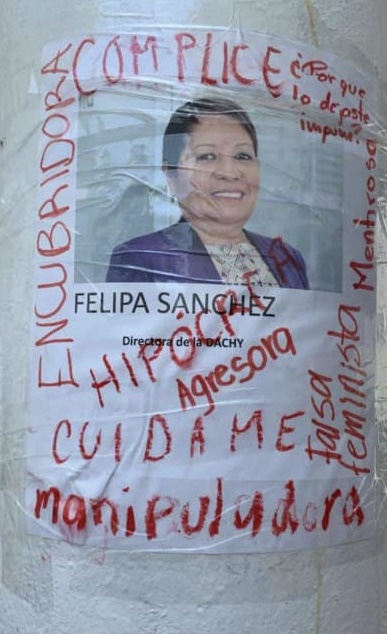 COMPLICE
¿Por que
lo depste
impune?
ENCUBRIDORA
Mentirosa
FELIPA SANCHEZ
Directora de la DACHY
HIPÓCRITA
Agresora
CUIDAME
falsa
feminista
manipuladora